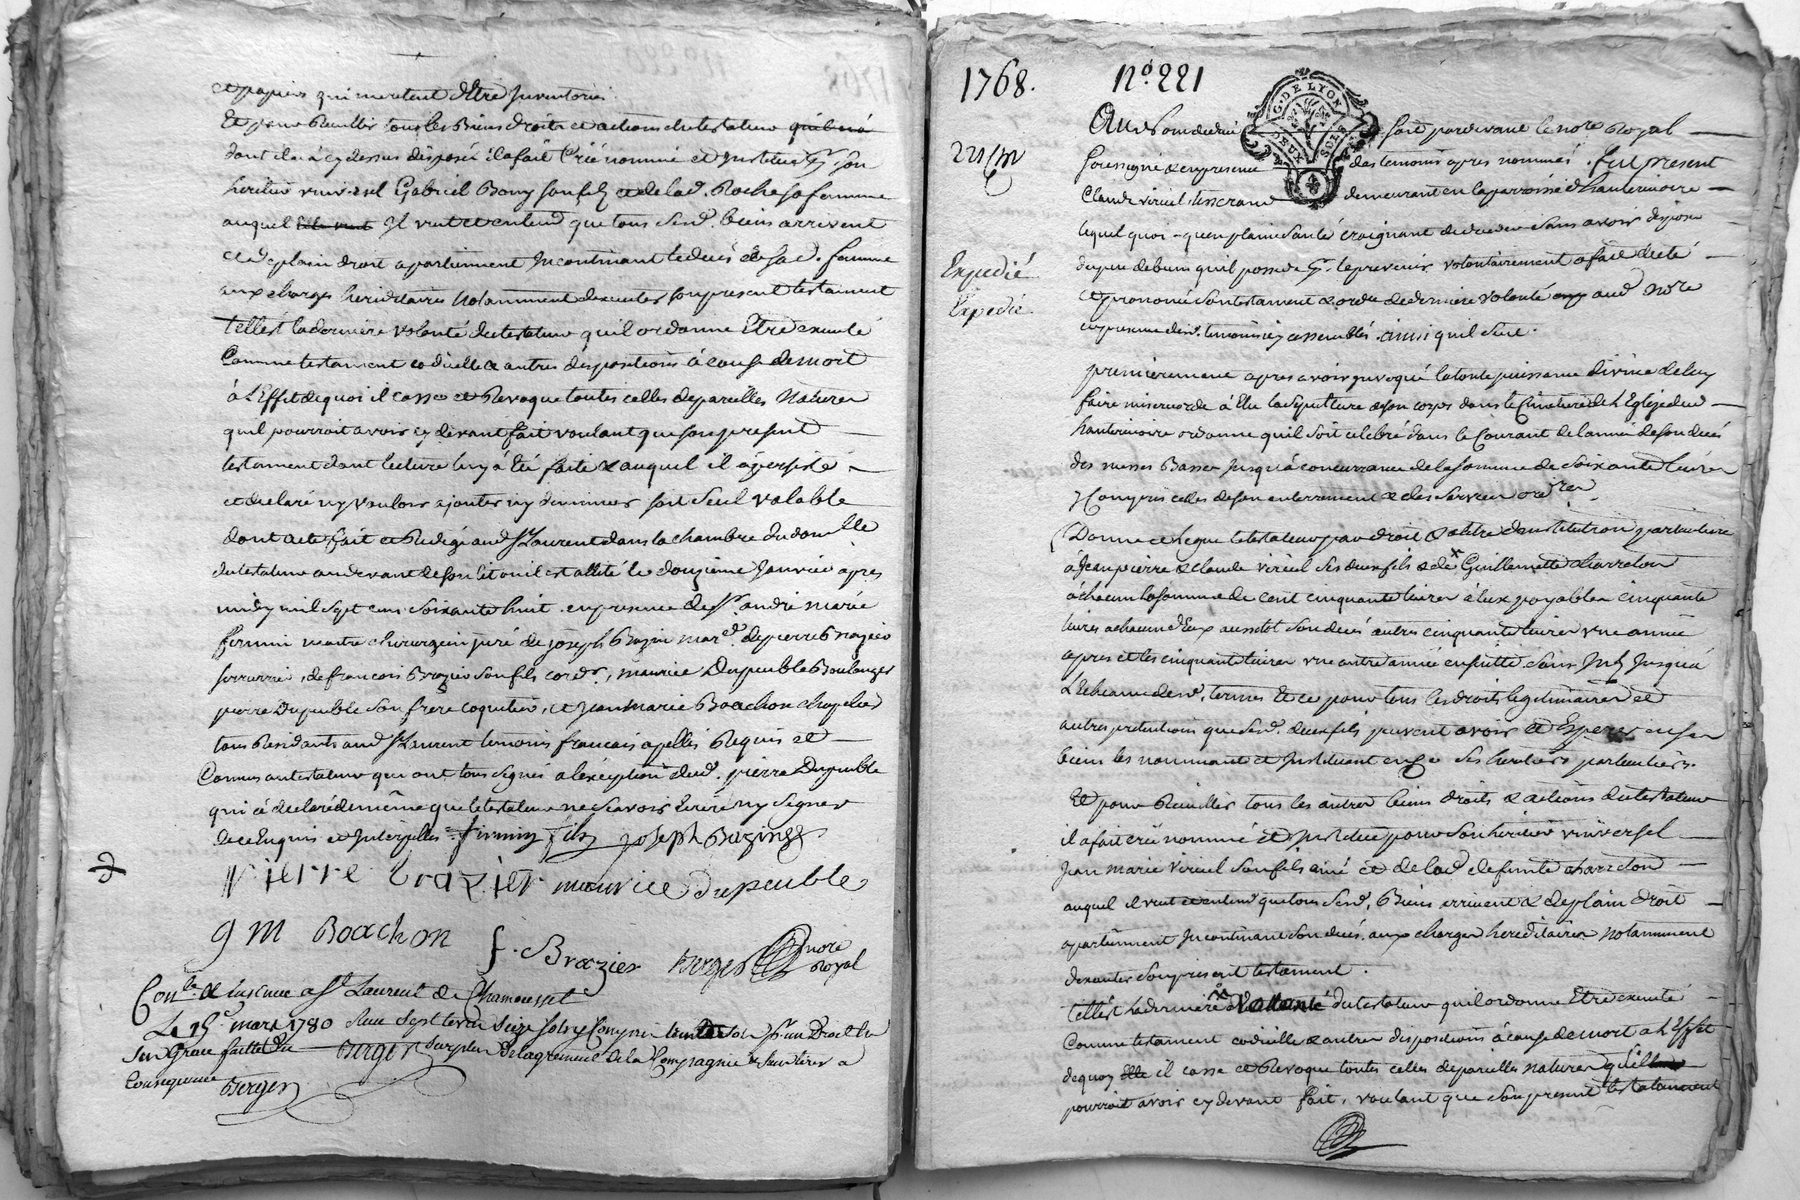 et papiers qui meritent d'Etre Inventories.
Et pour Recullir tous les Biens droits et actions du testateur
dont il n'a cy dessus disposé il a fait Créé nommé et Institué pr son
heritier universel Gabriel Bony son fils et de lad. Roche sa femme
auquel Il veut et entend que tous Sesd. biens arrivent
et de plain droit apartiennent Incontinant le deces de sad. femme
aux charges hereditaires Notamment d'executer son present testament
telle est la derniere volonté du testateur qu'il ordonne Etre executé
Comme testament codicille et autres dispositions à cause de mort
à l'Effet de quoi il casse et Revoque toutes celles de pareilles Natures
quil pourroit avoir cy devant fait voulant que son present
testament dont lecture luy à été faite & auquel il à persisté
et declaré n'y vouloir ajouter ny diminuer soit Seul valable
dont acte, fait et Redigé aud St Laurent dans la chambre du domlle
du testateur au devant de son lit ou il est allité le douzieme Janvier apres
midy mil sept cens soixante huit en presence de Sr. andré marie
firmin maitre chirurgien juré de joseph Bazin mard. de pierre Brazier
serrurier, de francois Brazier son fils cordr, maurice Dupeuble Boulanger
pierre Dupeuble son frere coquetier, et Jean Marie Boachon chapelier
tous Residants aud St Laurent temoins francais apellés Requis et
Connus au testateur qui ont tous signés a l'exception dud. pierre Dupeuble
qui à declaré de même que le testateur ne scavoir Ecrire ny signer
de ce Enquis et Interpellés firminy fils joseph Bazin
pierre brazier maurice Dupeuble
g M Boachon f. Brazier berger nore
Royal
Conlé & Insinué a St Laurent de Chamousset
Le 15e mars 1780 Reçu sept livres Seize sols y compris
berger Surplus de l'agrement de la Compagnie
Consequence berger
1768. No. 221
G. DE LYON
DEUX SOLS
Au Nom de dieu soit pardevant le nore Royal
221
soussigné & en presence des temoins apres nommés. fut present
Claude Viricel tisserand demeurant en la parroisse d'hauterivoire
lequel quoi-qu'en pleine Santé craignant de deceder Sans avoir disposé
Expedié
du peu de biens qu'il possede pr. le prevenir volontairement a fait dicté
Expedié
et prononcé son testament & ordre de derniere volonté aud Nore
en presence desd. temoins cy assemblés ainsi qu'il suit.
premierement apres avoir invoqué la toute puissance divine de luy
faire misericorde à Elu la sepulture de son corps dans le Cimetiere de l'Eglise dud
hauterivoire ordonne qu'il soit celebré dans le Courant de l'année de son decés
des messes Basses Jusqu'à concurrance de la somme de Soixante livres
y Compris celles de son enterrement & des services ordres
Donne et legue le testateur par droit & a titre d'institution particuliere
à Jean pierre & claude viricel ses deux fils & de x Guillemette charreton
à chacun la somme de cent cinquante livres à Eux payables cinquante
livres a chacun d'Eux aussitot son deces autres cinquante livres une année
apres et les cinquante livres une autre année ensuitte sans Int. Jusqu'à
L'Echeance desd. termes Et ce pour tous les droits legitimaires et
autres pretentions que Sesd. deux fils peuvent avoir & Esperer en ses
biens les nommant et Instituant en ce ses heritiers particuliers.
Et pour Recuillir tous les autres biens droits & actions du testateur
il a fait créé nommé et Institué pour son heritier universel
Jean marie viricel son fils ainé et de lad defunte charreton
auquel il veut et entend que tous Sesd. Biens arrivent & de plain droit
apartiennent Incontinant son deces, aux charges hereditaires Notamment
d'executer son present testament.
telle est la derniere Vollonté du testateur qu'il ordonne Etre executé
Comme testament codicille & autres dispositions à cause de mort a l'Effet
de quoy il casse et Revoque toutes celles de pareilles natures qu'il
pourroit avoir cy devant fait, voulant que son present testament